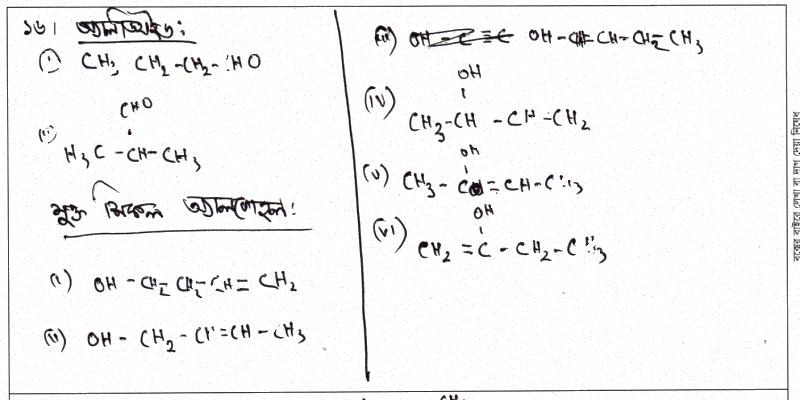 ১৬। অ্যালডিহাইড:
(i) CH3 CH2-CH2-CHO
CHO
(ii) H3C-CH-CH3
মুক্ত শিকল অ্যালকোহল:
(i) OH-CH2-CH2-CH=CH2
(ii) OH-CH2-CH=CH-CH3
(iii) OH-CH=CH-CH2-CH3
OH
(iv) CH3-CH-CH-CH2
OH
(v) CH3-C=CH-CH3
OH
(vi) CH2=C-CH2-CH3
বক্সের বাইরে লেখা বা দাগ দেয়া নিষেধ